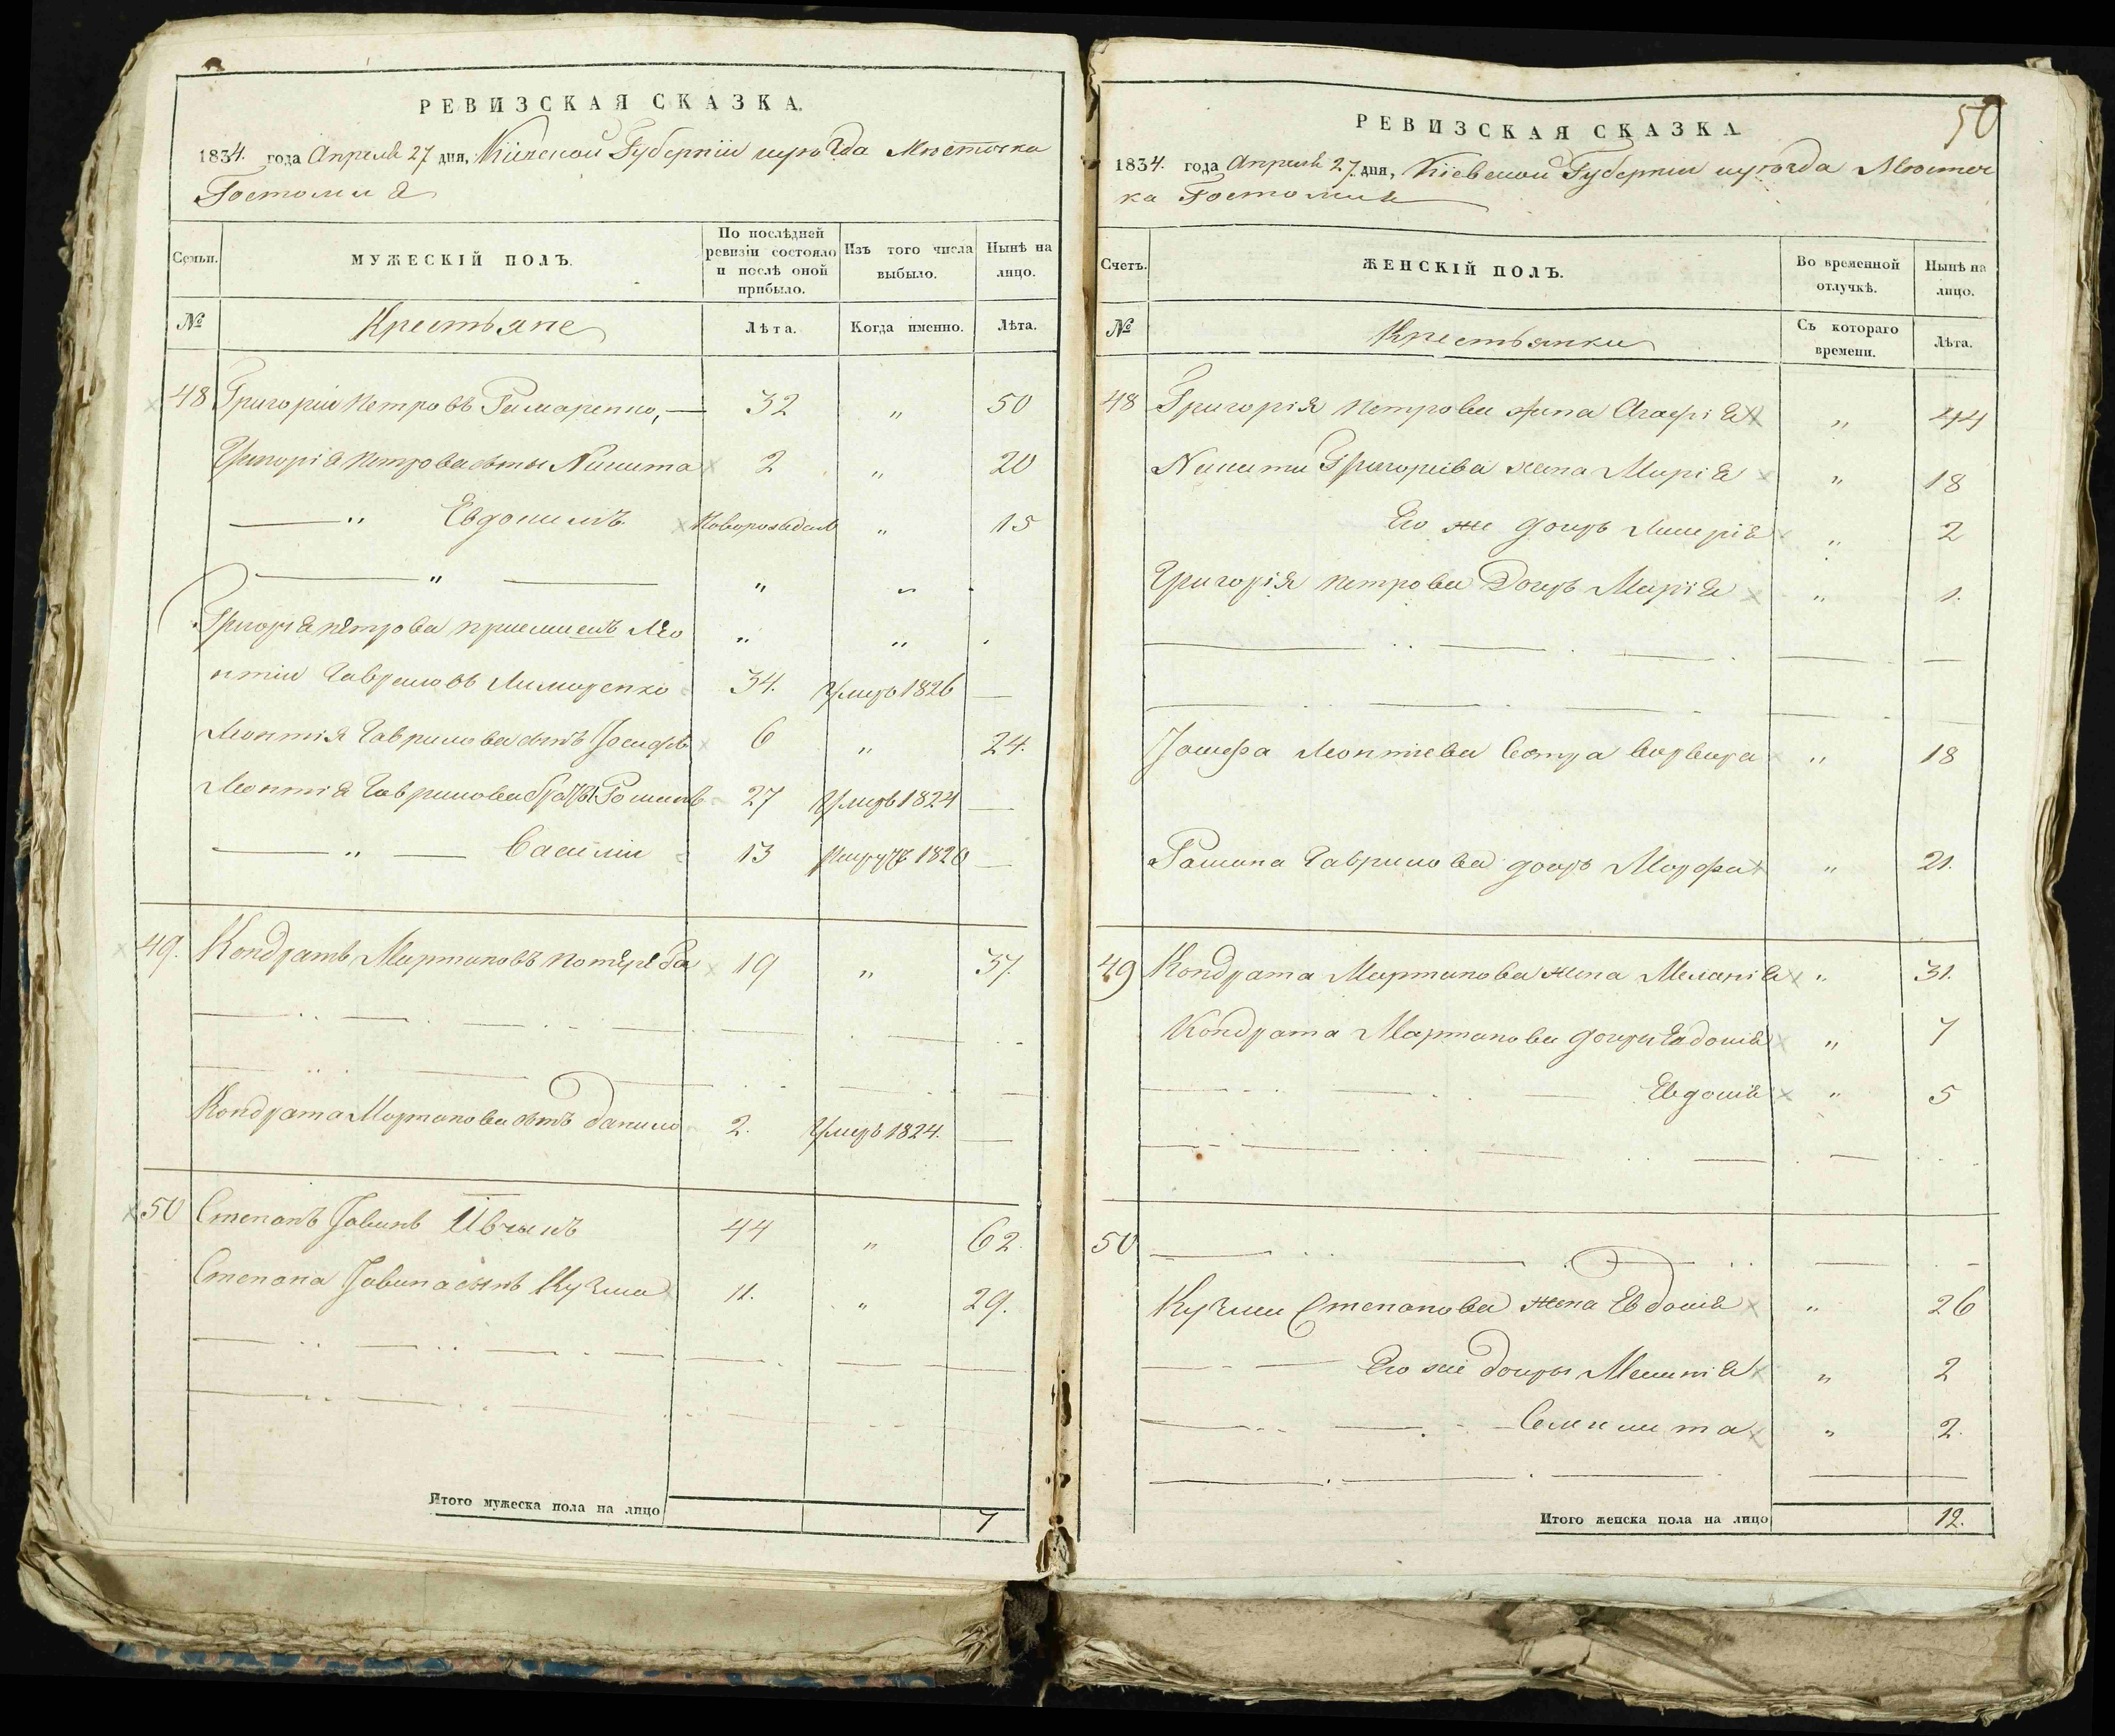 РЕВИЗСКАЯ СКАЗКА.
1834. года Апреля 27 дня, Кіевской Губерніи и уѣзда Мѣстечка
Гостомля
Семьи.
МУЖЕСКІЙ ПОЛЪ.
По послѣдней
ревизіи состояло
и послѣ оной
прибыло.
Изъ того числа
выбыло.
Нынѣ на
лицо.
№
Крестьяне
Лѣта.
Когда именно.
Лѣта.
48 Григорій Петровъ 32 " 50
Григорія Петрова сыны Никита 2 " 20
" Евдокимъ Новорожден " 15
" " "
Григорія Петрова приемишъ Лео " "
нтій Гавриловъ 34. Умеръ 1826
Леонтія Гаврилова сынъ Іосифъ 6 " 24.
Леонтія Гаврилова братья Романъ 27 Умеръ 1824
" Василій 13 1820
49. Кондратъ Мартиновъ 19 " 37.
Кондрата Мартинова сынъ Данило 2. Умеръ 1824.
50 Степанъ Іовинъ 44 " 62.
Степана Іовина сынъ Кузма 11. " 29.
Итого мужеска пола на лицо 7
50
РЕВИЗСКАЯ СКАЗКА
1834. года Апреля 27. дня, Кіевской Губерніи и уѣзда Мѣстеч
ка Гостомля
Счетъ.
ЖЕНСКІЙ ПОЛЪ.
Во временной
отлучкѣ.
Нынѣ на
лицо.
№
Крестьянки
Съ котораго
времени.
Лѣта.
48 Григорія Петрова жена Агафія " 44
Никиты Григорьева жена Марія " 18
Его же дочерь " 2
Григорія Петрова Дочерь Марія " 1.
Іосифа Леонтіева Сестра Варвара " 18
Романа Гаврилова дочерь Марфа " 21.
49 Кондрата Мартинова жена Меланія " 31.
Кондрата Мартинова дочери Евдокія " 7
Евдокія " 5
50
Кузмы Степанова жена Евдокія " 26
Его же дочеры " 2
" 2.
Итого женска пола на лицо 12.